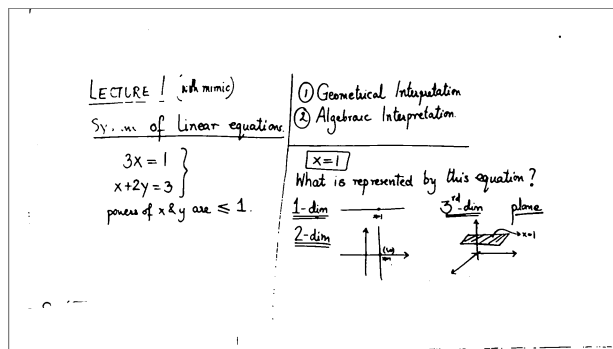 LECTURE 1 (with mimic)
of Linear equations.
3x = 1
x+2y = 3
powers of x & y are ≤ 1.
① Geometrical Interpretation
② Algebraic Interpretation.
x=1
What is represented by this equation?
1-dim
x=1
2-dim
x=1
3rd-dim plane
x=1